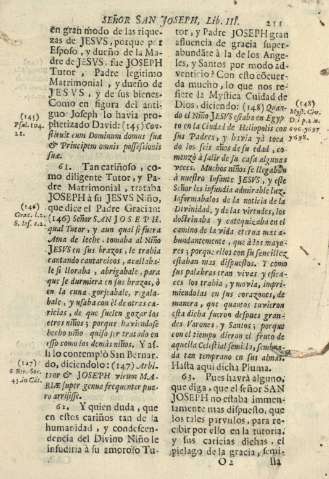 SEÑOR SAN JOSEPH, Lib. III. 211
en gran modo de las rique-
zas de JESVS, porque por
Esposo, y dueño de la Ma-
dre de JESVS fue JOSEPH
Tutor, Padre legitimo
Matrimonial, y dueño de
JESVS, y de sus bienes.
Como en figura del anti-
guo Joseph lo havia pro-
phetizado David: (145) Con-
stituit eum Dominum domus suæ
& Principem omnis possessionis
suæ.
(145)
Psal. 104.
21.
61. Tan cariñoso, co-
mo diligente Tutor, y Pa-
dre Matrimonial, trataba
JOSEPH à su JESVS Niño,
que dice el Padre Gracian:
(146) Señor SAN JOSEPH,
qual Tutor, y aun qual si fuera
Ama de leche, tomaba al Niño
JESVS en sus brazos, le trahia
cantando cantarcicos, acallaba-
le si lloraba, abrigabale, para
que se durmiera en sus brazos, ò
en la cuna, gorjeabale, rega-
labale, y usaba con èl de otras ca-
ricias, de que suelen gozar los
otros niños; porque haviendose
hecho niño quiso ser tratado en
esso como los demàs niños. Y as-
si lo contemplò San Bernar-
do, diciendolo: (147) Arbi-
tror & JOSEPH virum MA-
RIÆ super genua frequenter pue-
ro arrisisse.
(146)
(147)
62. Y quien duda, que
en estos cariños tan de la
humanidad, y condescen-
dencia del Divino Niño le
infudiria à su amoroso Tu-
tor, y Padre JOSEPH gran
afluencia de gracia super-
abundáte à la de los Ange-
les, y Santos por modo ad-
venticio? Con esto cõcuer-
da mucho, lo que nos re-
fiere la Mystica Cuidad de
Dios, diciendo: (148) Quan-
do el Niño JESVS estaba en Egyp-
to en la Ciudad de Heliopolis con
sus Padres, y havia yà toca-
do los seis años de su edad, co-
menzò à salir de su casa algunas
veces. Muchos niños se llegabãn
à nuestro Infante JESVS, y este
Señor les infundia admirable luz,
informabalos de la noticia de la
Divinidad, y de las virtudes, los
doctrinaba y catequizaba en el
camino de la vida eterna mas a-
bundantemente, que à los mayo-
res; porque ellos con su sencillez
estaban mas dispuestos. Y como
sus palabras eran vivas y efica-
ces los trahia, y movia, impri-
miendolas en sus corazones, de
manera, que quantos tuvieron
esta dicha fueron despues gran-
des Varones, y Santos; porque
con el tiempo dieron el fruto de
aquella Celestial semilla, sembra-
da tan temprano en sus almas.
Hasta aqui dicha Pluma.
(148)
63. Pues havrà alguno,
que diga, que el señor SAN
JOSEPH no estaba immensa-
mente mas dispuesto, que
los tales parvulos, para re-
cibir por ello en la tutoria,
y sus caricias dichas, el
pielago de la gracia, semi-
O 2 lla